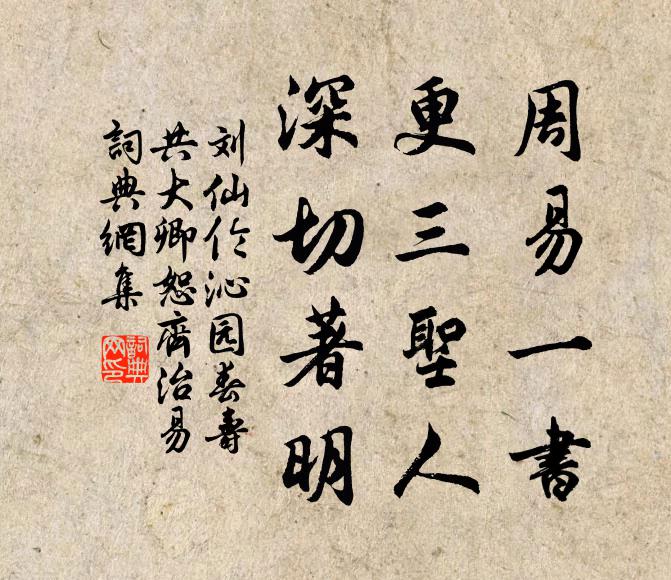 周易一書
更三聖人
深切著明
刘仙伦沁园春壽
共大卿恕齋治易
詞典網集
詞典
网印